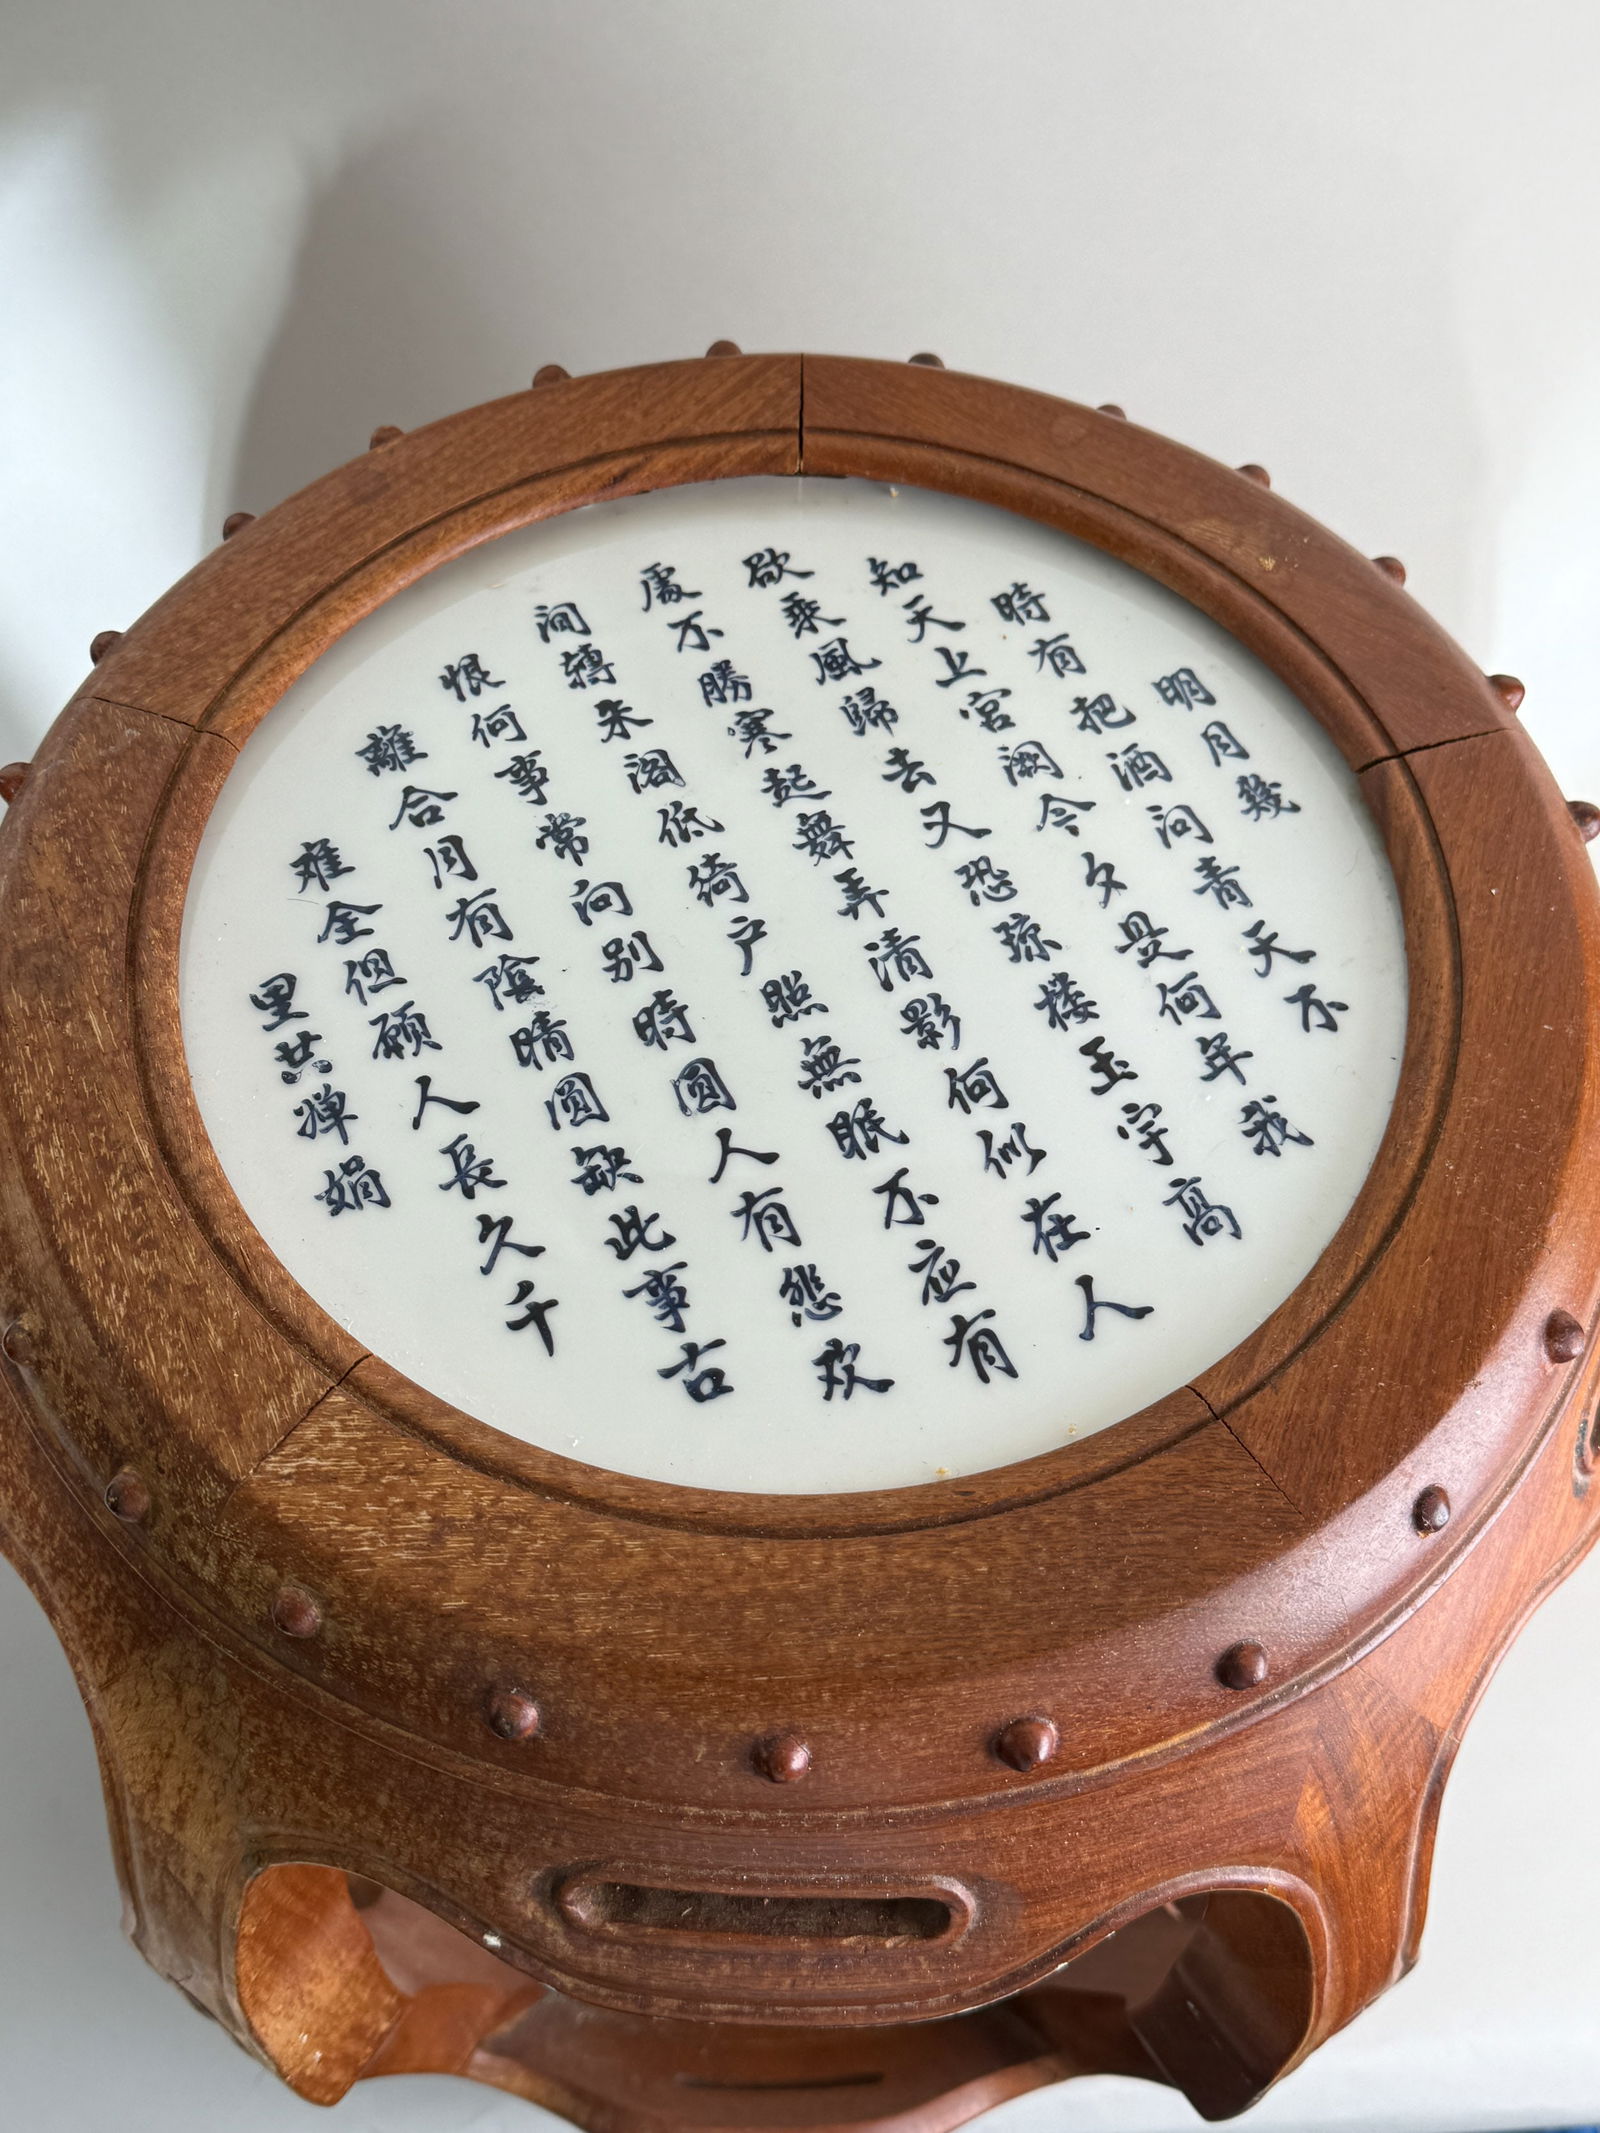 明月幾
時有把酒问青天不
知天上宮阙今夕是何年我
欲乘風歸去又恐琼楼玉宇高
處不勝寒起舞弄清影何似在人
间轉朱阁低綺户照無眠不应有
恨何事常向别時圓人有悲欢
離合月有陰晴圓缺此事古
难全但願人長久千
里共婵娟